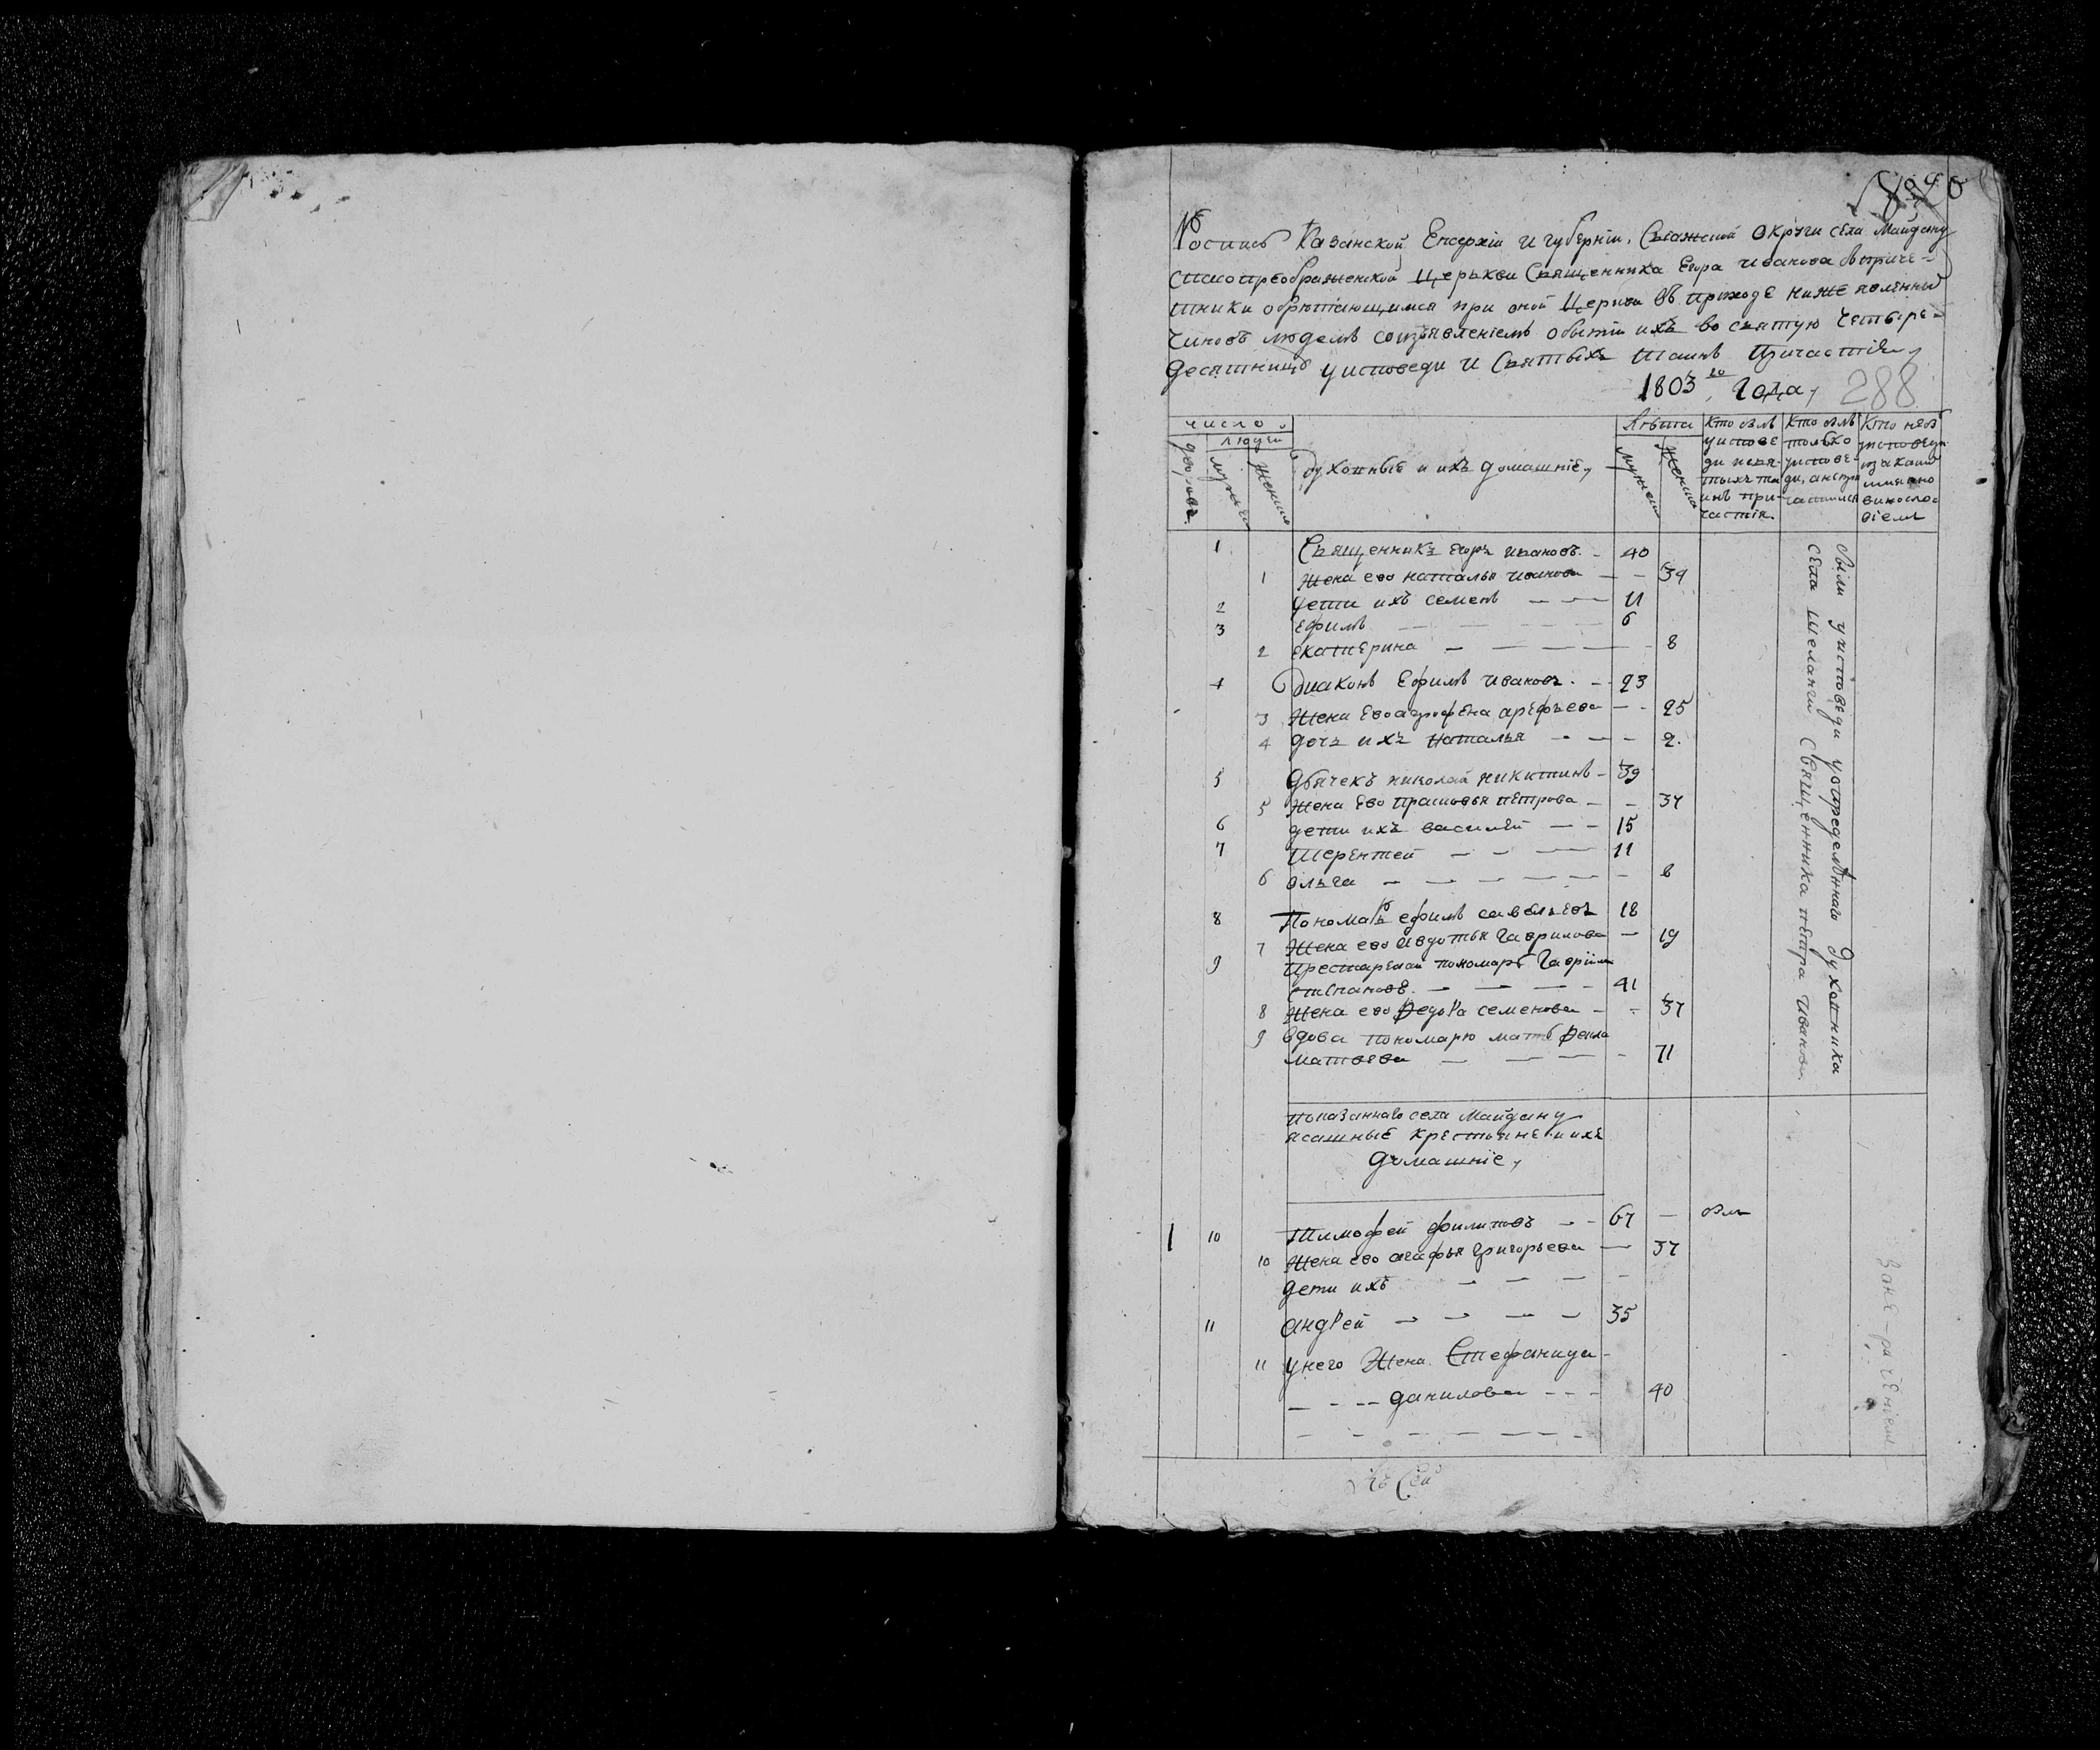 Роспись Казанской Епархіи и губерніи, Свіяжской округи села Майдану
спасопреображенской Церькви Священника Егора Иванова съ приче-
тники обрѣтающимся при оной Церкви въ приходѣ нижеявленныхъ
чиновъ людемъ со изъявленіемъ о бытіи ихъ во святую четыре-
десятницу у исповеди и Святыхъ Таинъ Причастія,
1803го Года, 288
число
людей
дворовъ
мужеска
женска
Духовные и ихъ домашніе,
Лѣта
мужеска
женска
Кто былъ у исповеди и святыхъ таинъ причастія.
Кто былъ только у исповеди, а не причастился
Кто не былъ у исповеди и за какимъ имянно винословіемъ
1 Священникъ Егоръ Ивановъ - 40
1 Жена ево наталья иванова - - 39
2 дети ихъ семенъ - - 11
3 ефимъ 6
2 екатерина - - - - 8
4 Диаконъ Ефимъ Ивановъ. - 23
3 Жена Ево агрофена арефьева - - 25
4 дочь ихъ наталья - - - 2.
5 дьячекъ николай никитинъ - 39
5 Жена Ево прасковья петрова - - 37
6 дети ихъ василей - - 15
7 Терентей - - - 11
6 ольга - - - - - - 6
8 Пономарь ефимъ савельевъ 18
7 Жена ево Авдотья Гаврилова - 19
9 Престарелой пономарь Гаврила
степановъ. - - - - 41
8 Жена ево Федора семенова - - 37
9 вдова пономарю мать Фекла
матвеева - - - - 71
были у исповеди у определеннаго духовника
села шеланги Священника петра иванова.
показаннаго села Майдану
ясашные крестьяне и ихъ
домашніе,
1 10 Тимофей филиповъ - - 67 - былъ
10 Жена ево агафья григорьева - 37
дети ихъ - - - -
11 андрей - - - - 35
11 у него Жена Стефанида -
- - - данилова - - - 40